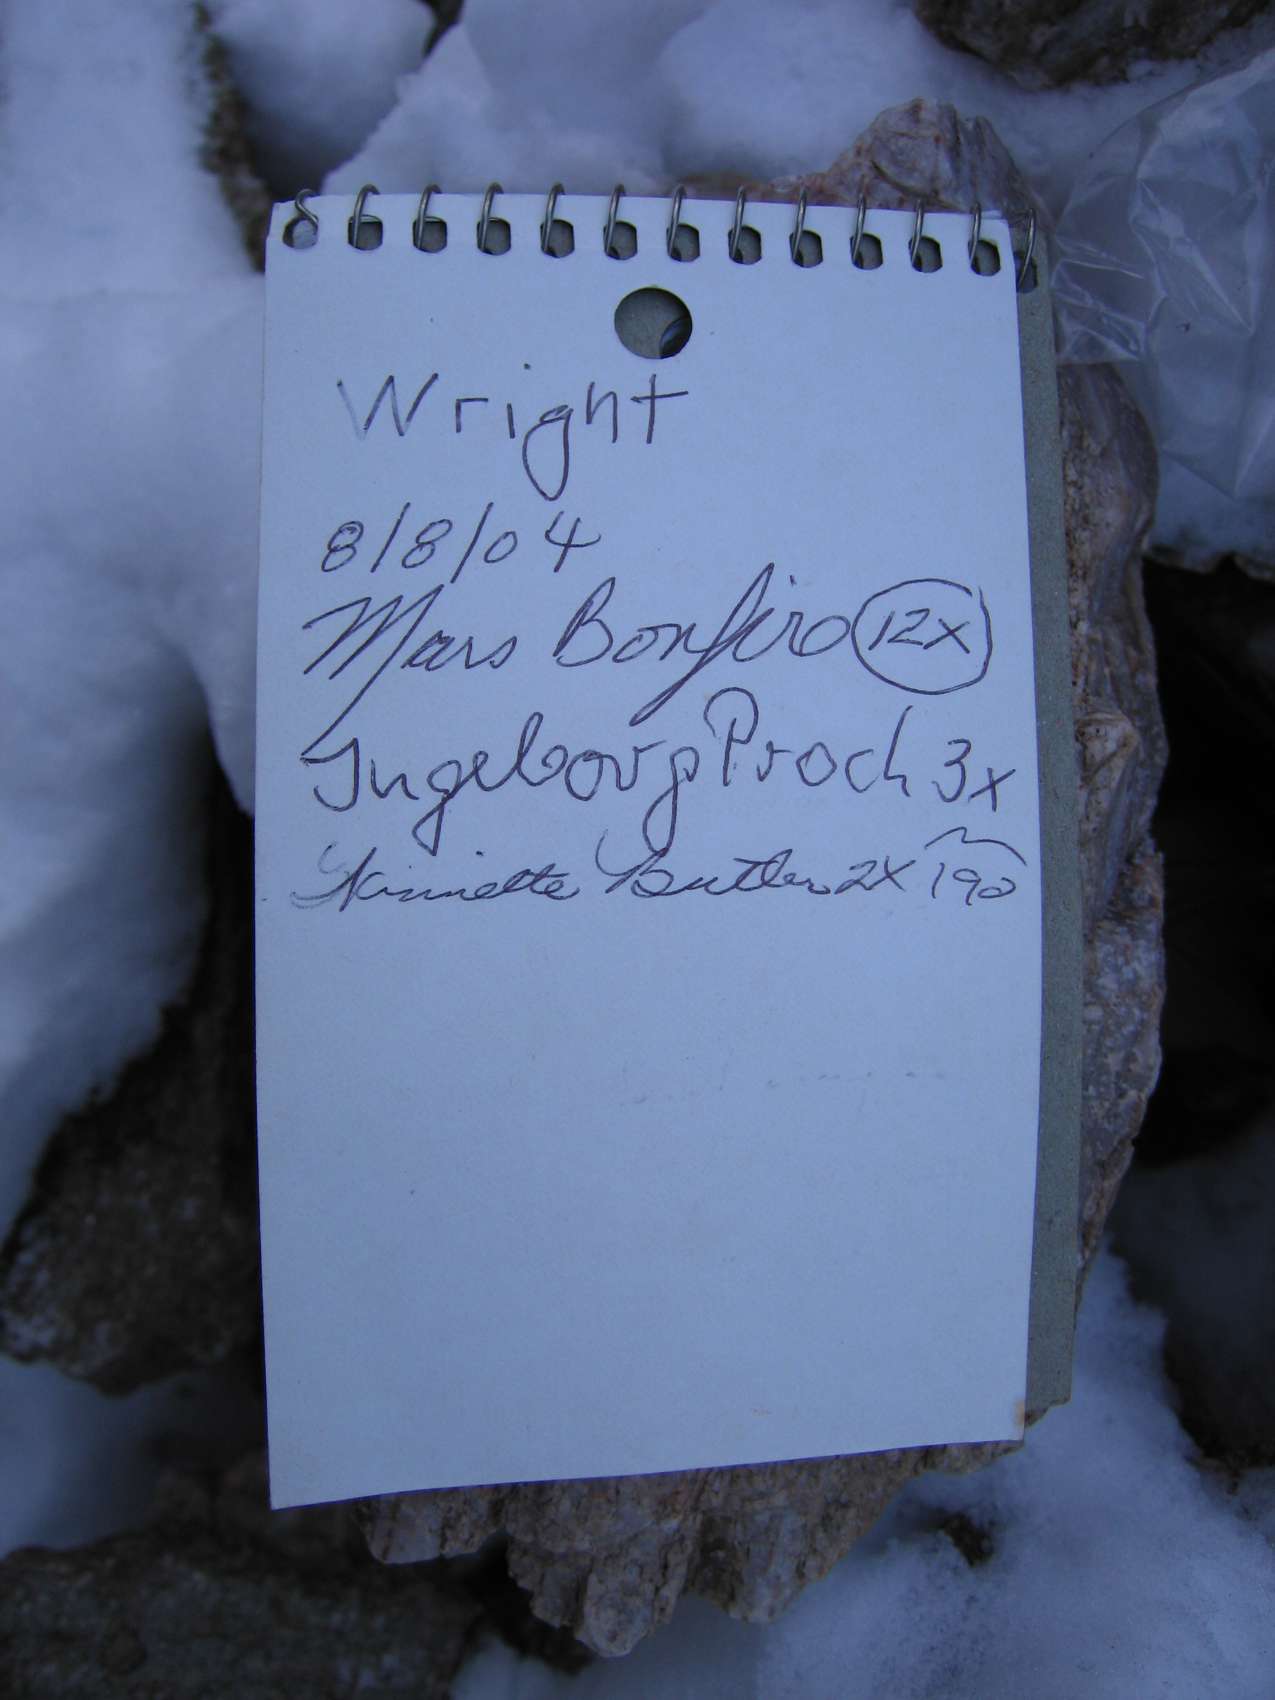 Wright
8/8/04
Mars Bonfire 12x
Ingeborg Proch 3x
Butler 2X 190